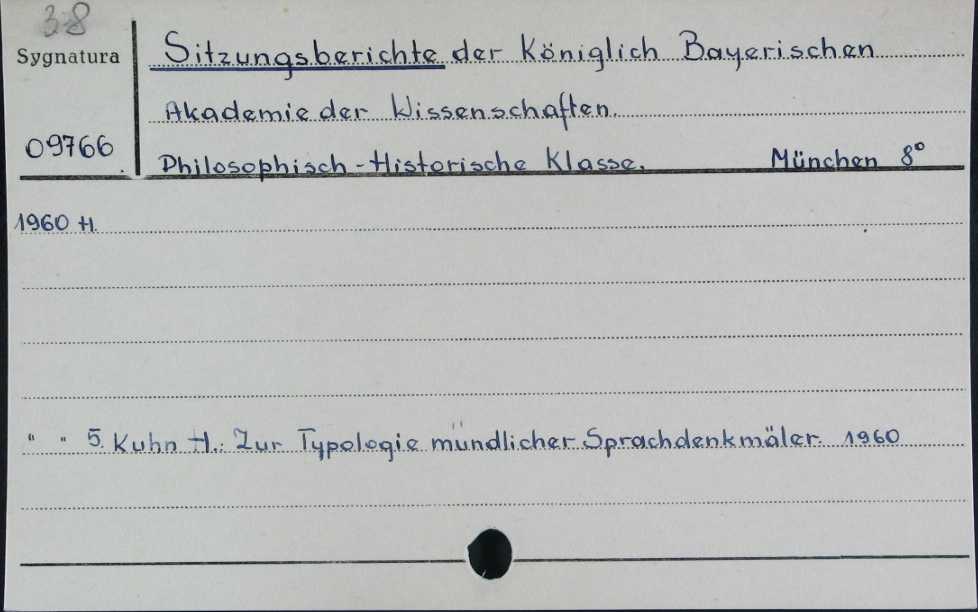 3-8
Sygnatura
Sitzungsberichte der Königlich Bayerischen
Akademie der Wissenschaften.
09766
Philosophisch-Historische Klasse. München 8°
1960 H.
" " 5. Kuhn H.: Zur Typologie mündlicher Sprachdenkmäler. 1960